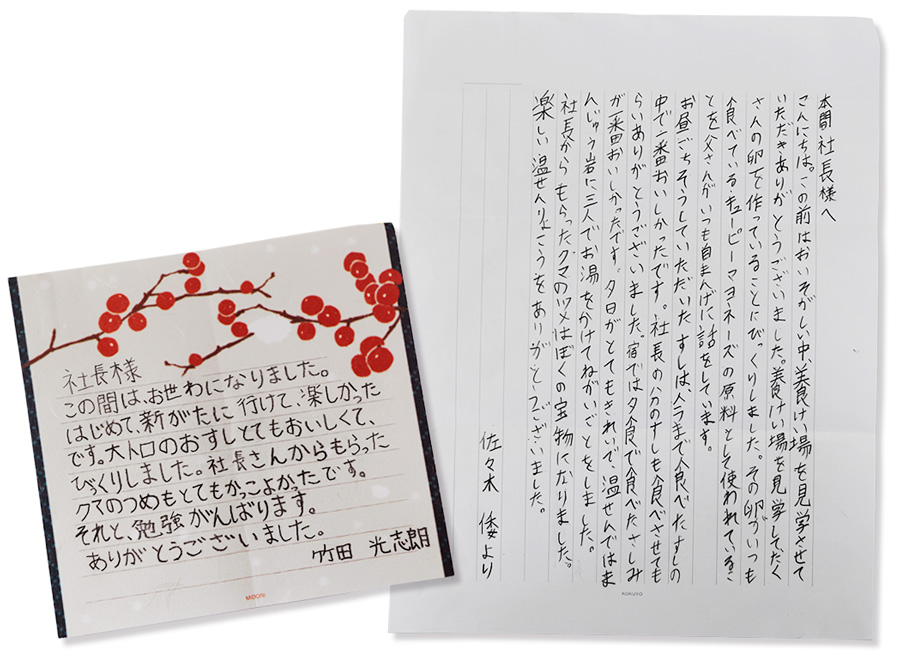 社長様
この間は、お世わになりました。
はじめて、新がたに行けて、楽しかった
です。大トロのおすしとてもおいしくて、
びっくりしました。社長さんからもらった
クマのつめもとてもかっこよかったです。
それと、勉強がんばります。
ありがとうございました。
竹田 光志朗
MIDORI
本間社長様へ
こんにちは。この前はおいそがしい中、養けい場を見学させて
いただきありがとうございました。養けい場を見学してたく
さんの卵を作っていることにびっくりしました。その卵がいつも
食べているキューピーマヨネーズの原料として使われているこ
とを父さんがいつも自まんげに話をしています。
お昼ごちそうしていただいたすしは、今まで食べたすしの
中で一番おいしかったです。社長の分のすしも食べさせても
らいありがとうございました。宿では夕食で食べたさしみ
が一番おいしかったです。夕日がとてもきれいで、温せんではま
んじゅう岩に三人でお湯をかけてねがいごとをしました。
社長からもらったクマのツメはぼくの宝物になりました。
楽しい温せんりょこうをありがとうございました。
佐々木 倭より
KOKUYO